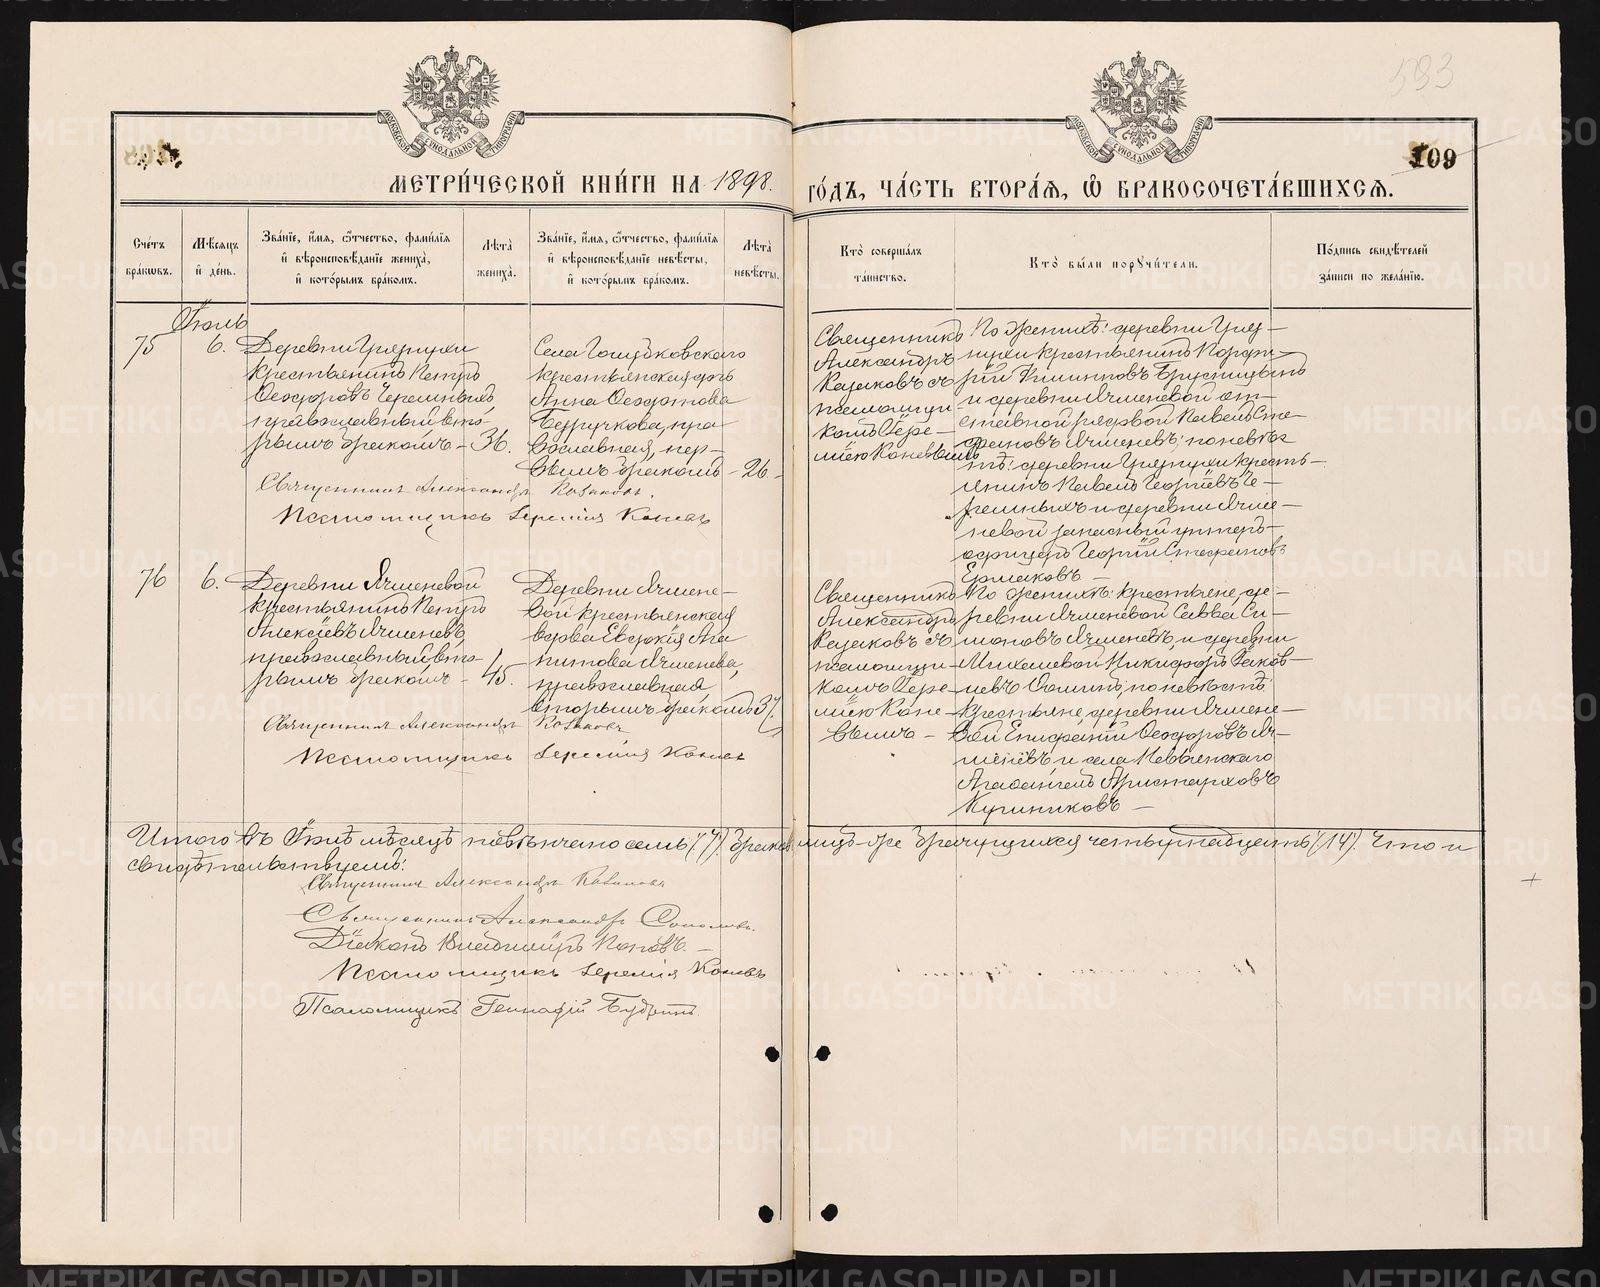 593
109
МЕТРИ́ЧЕСКОЙ КНИ́ГИ НА 1898.
ГО́ДЪ, ЧА́СТЬ ВТОРА́Я, Ѿ БРАКОСОЧЕТА́ВШИХСЯ.
Сче́тъ бра́кѡвъ.
Мѣ́сяцъ и҆ де́нь.
Зва́нїе, и҆́мя, ѻ҆́тчество, фами́лїя и҆ вѣроисповѣ́данїе жениха̀, и҆ кото́рымъ бра́комъ.
Лѣ́та жениха̀.
Зва́нїе, и҆́мя, ѻ҆́тчество, фами́лїя и҆ вѣроисповѣ́данїе невѣ́сты, и҆ кото́рымъ бра́комъ.
Лѣ́та невѣ́сты.
Кто̀ соверша́лъ та́инство.
Кто̀ бы́ли порꙋчи́тели.
По́дпись свидѣ́телей за́писи по жела́нїю.
Іюль
75
6.
Деревни
крестьянинъ Петръ
Ѳеодоровъ Черемныхъ,
православный, вто-
рымъ бракомъ - 36.
Села
крестьянская
Анна
пра-
вославная, пер-
вымъ бракомъ - 26.
Священникъ
Александръ
Казаковъ съ
псаломщи-
комъ Іере-
міею Коневымъ
По женихѣ: деревни
крестьянинъ Порфи-
рій Филипповъ Брусницынъ
и деревни Ячменевой от-
ставной рядовой Павелъ Сте-
фановъ Ячменевъ; по невѣс-
тѣ: деревни кресть-
янинъ Павелъ Георгіевъ Че-
ремныхъ и деревни Ячме-
невой запасный унтеръ-
офицеръ Георгій Стефановъ
Ермаковъ -
Священникъ Александръ Казаковъ.
Псаломщикъ Іеремія Коневъ
76
6.
Деревни Ячменевой
крестьянинъ Петръ
Алексіевъ Ячменевъ,
православный, вто-
рымъ бракомъ - 45.
Деревни Ячмене-
вой крестьянская
вдова Евдокія Ага-
питова Ячменева,
православная,
вторымъ бракомъ 37.
Священникъ
Александръ
Казаковъ съ
псаломщи-
комъ Іере-
міею Коне-
вымъ -
По женихѣ: крестьяне де-
ревни Ячменевой Савва Си-
моновъ Ячменевъ, и деревни
Михалевой Никифоръ Іаков-
левъ Ѳоминъ; по невѣстѣ:
крестьяне деревни Ячмене-
вой Епифаній Ѳеодоровъ Яч-
меневъ и села Невьянскаго
Агаѳангелъ Аристарховъ
Куриниковъ -
Священникъ Александръ Казаковъ
Псаломщикъ Іеремія Коневъ
Итого въ Іюлѣ мѣсяцѣ повѣнчано семь (7) браковъ, лицъ-же брачущихся четырнадцать (14). Что и
свидѣтельствуемъ:
Священникъ Александръ Казаковъ
Священникъ Александръ
Діаконъ Владиміръ Поповъ. -
Псаломщикъ Іеремія Коневъ
Псаломщикъ Геннадій Будринъ.
METRIKI.GASO-URAL.RU